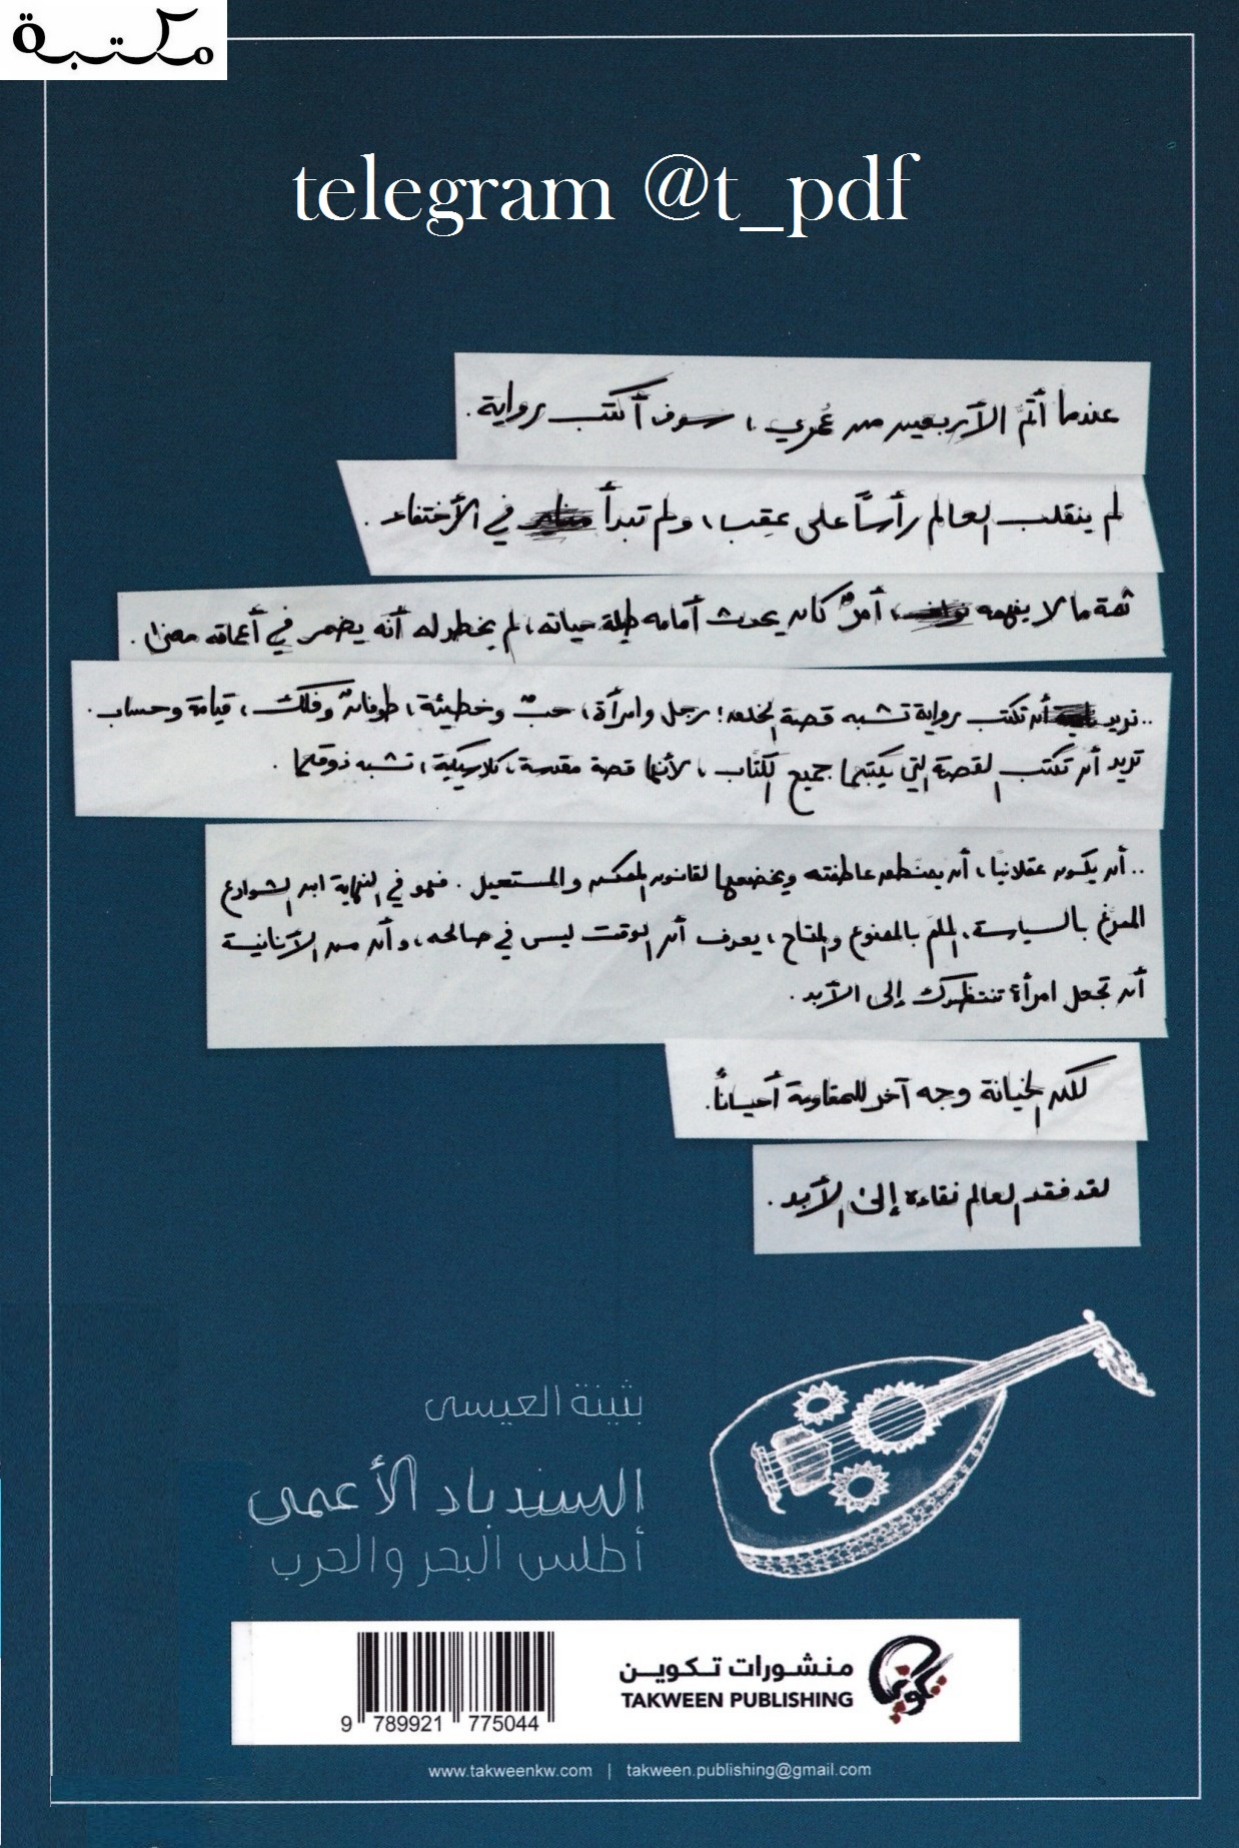 مكتبة
telegram @t_pdf
عندما أتمّ الأربعين من عُمري، سوف أكتب رواية.
لم ينقلب العالم رأسًا على عقِب، ولم تبدأ في الأختفاء.
ثمة ما لا يفهمه، أمرٌ كان يحدث أمامه طيلة حياته، لم يخطر له أنه يضمر في أعماقه معنى.
..تريد أن تكتب رواية تشبه قصة الخلق؛ رجل وامرأة، حبٌ وخطيئة، طوفانٌ وفلك، قيامة وحساب.
تريد أن تكتب القصة التي يكتبها جميع الكتّاب، لأنها قصة مقدسة، كلاسيكية، تشبه ذوقها.
..أن يكون عقلانيا، أن يمنطق عاطفته ويخضعها لقانون الممكن والمستحيل. فهو في النهاية ابن الشوارع
الممرّغ بالسياسة، الملمّ بالممنوع والمتاح، يعرف أن الوقت ليس في صالحه، وأن من الأنانية
أن تجعل امرأة تنتظرك إلى الأبد.
لكن الخيانة وجه آخر للمقاومة أحيانًا.
لقد فقد العالم نقاءه إلى الأبد.
بثينة العيسى
السندباد الأعمى
أطلس البحر والحرب
منشورات تكوين
TAKWEEN PUBLISHING
تكوين
9 789921 775044
www.takweenkw.com | takween.publishing@gmail.com